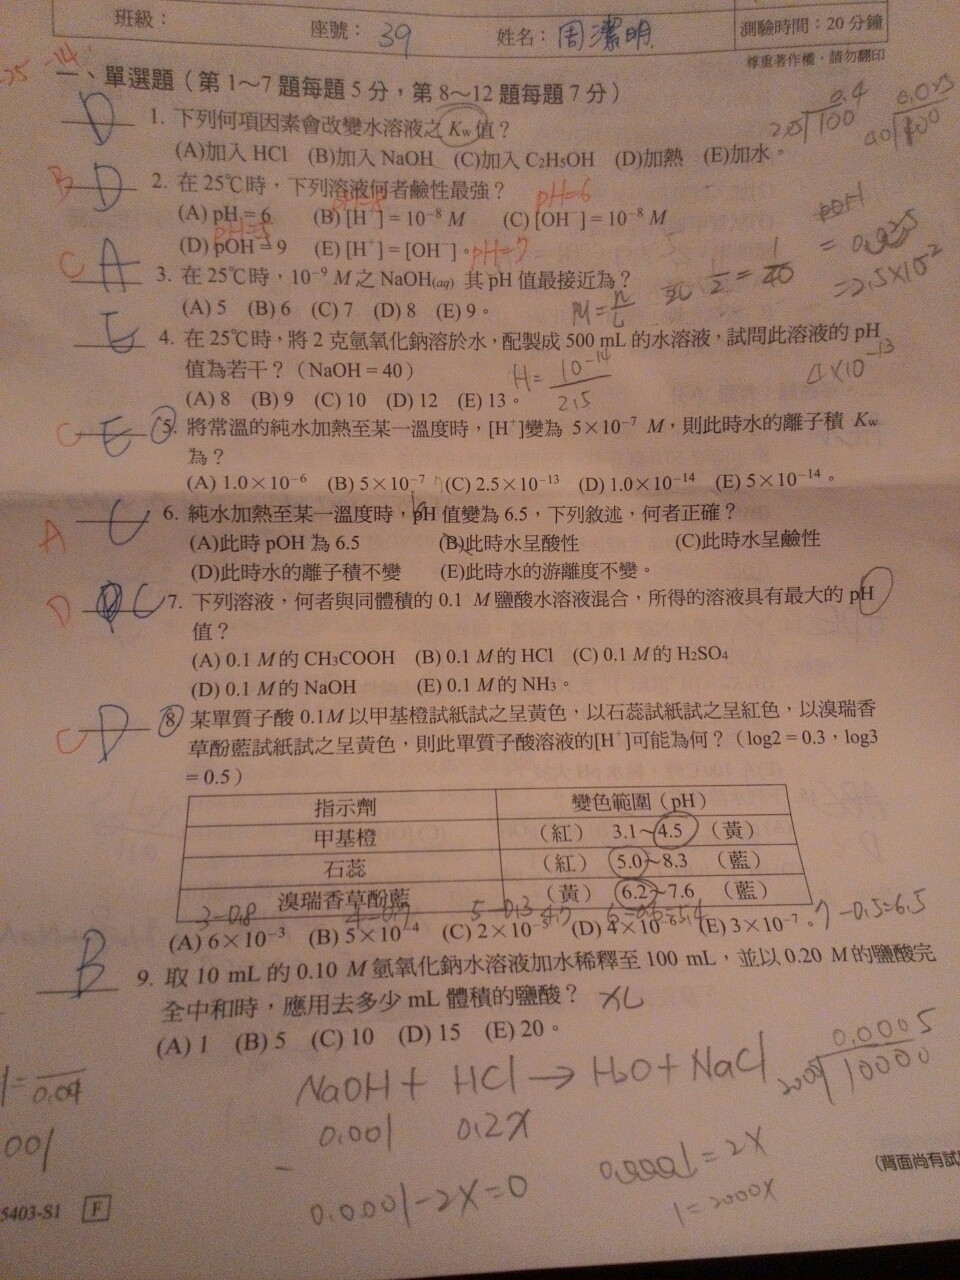 班級：
座號： 39 姓名：周潔明 測驗時間：20 分鐘
尊重著作權，請勿翻印
-25 -14
一、單選題（第 1～7 題每題 5 分，第 8～12 題每題 7 分）
D 1. 下列何項因素會改變水溶液之 Kw 值？
(A)加入 HCl (B)加入 NaOH (C)加入 C2H5OH (D)加熱 (E)加水。
B D 2. 在 25℃時，下列溶液何者鹼性最強？
pH=8 pH=6
(A) pH = 6 (B) [H+] = 10−8 M (C) [OH−] = 10−8 M
pH=5
(D) pOH = 9 (E) [H+] = [OH−]。 pH=7
C A 3. 在 25℃時，10−9 M 之 NaOH(aq) 其 pH 值最接近為？
(A) 5 (B) 6 (C) 7 (D) 8 (E) 9。
M=n/L
=2.5×10-2
E 4. 在 25℃時，將 2 克氫氧化鈉溶於水，配製成 500 mL 的水溶液，試問此溶液的 pH
值為若干？（NaOH = 40） H= 10-14/2.5 4×10-13
(A) 8 (B) 9 (C) 10 (D) 12 (E) 13。
C E 5. 將常溫的純水加熱至某一溫度時，[H+]變為 5×10−7 M，則此時水的離子積 Kw
為？
(A) 1.0×10−6 (B) 5×10−7 (C) 2.5×10−13 (D) 1.0×10−14 (E) 5×10−14。
A C 6. 純水加熱至某一溫度時，pH 值變為 6.5，下列敘述，何者正確？
(A)此時 pOH 為 6.5 (B)此時水呈酸性 (C)此時水呈鹼性
(D)此時水的離子積不變 (E)此時水的游離度不變。
D C 7. 下列溶液，何者與同體積的 0.1 M 鹽酸水溶液混合，所得的溶液具有最大的 pH
值？
(A) 0.1 M 的 CH3COOH (B) 0.1 M 的 HCl (C) 0.1 M 的 H2SO4
(D) 0.1 M 的 NaOH (E) 0.1 M 的 NH3。
C D 8. 某單質子酸 0.1M 以甲基橙試紙試之呈黃色，以石蕊試紙試之呈紅色，以溴瑞香
草酚藍試紙試之呈黃色，則此單質子酸溶液的[H+]可能為何？（log2 = 0.3，log3
= 0.5）
指示劑 變色範圍（pH）
甲基橙 （紅） 3.1～4.5 （黃）
石蕊 （紅） 5.0～8.3 （藍）
溴瑞香草酚藍 （黃） 6.2～7.6 （藍）
3-0.8 4-0.7 5-0.3=4.7 6-0.6=5.4 7-0.5=6.5
(A) 6×10−3 (B) 5×10−4 (C) 2×10−5 (D) 4×10−6 (E) 3×10−7。
B 9. 取 10 mL 的 0.10 M 氫氧化鈉水溶液加水稀釋至 100 mL，並以 0.20 M 的鹽酸完
全中和時，應用去多少 mL 體積的鹽酸？ XL
(A) 1 (B) 5 (C) 10 (D) 15 (E) 20。
NaOH + HCl → H2O + NaCl
0.001 0.2X
0.0005
2000 10000
0.0001=2X
0.0001-2X=0
1=2000X
（背面尚有試
5403-S1 F